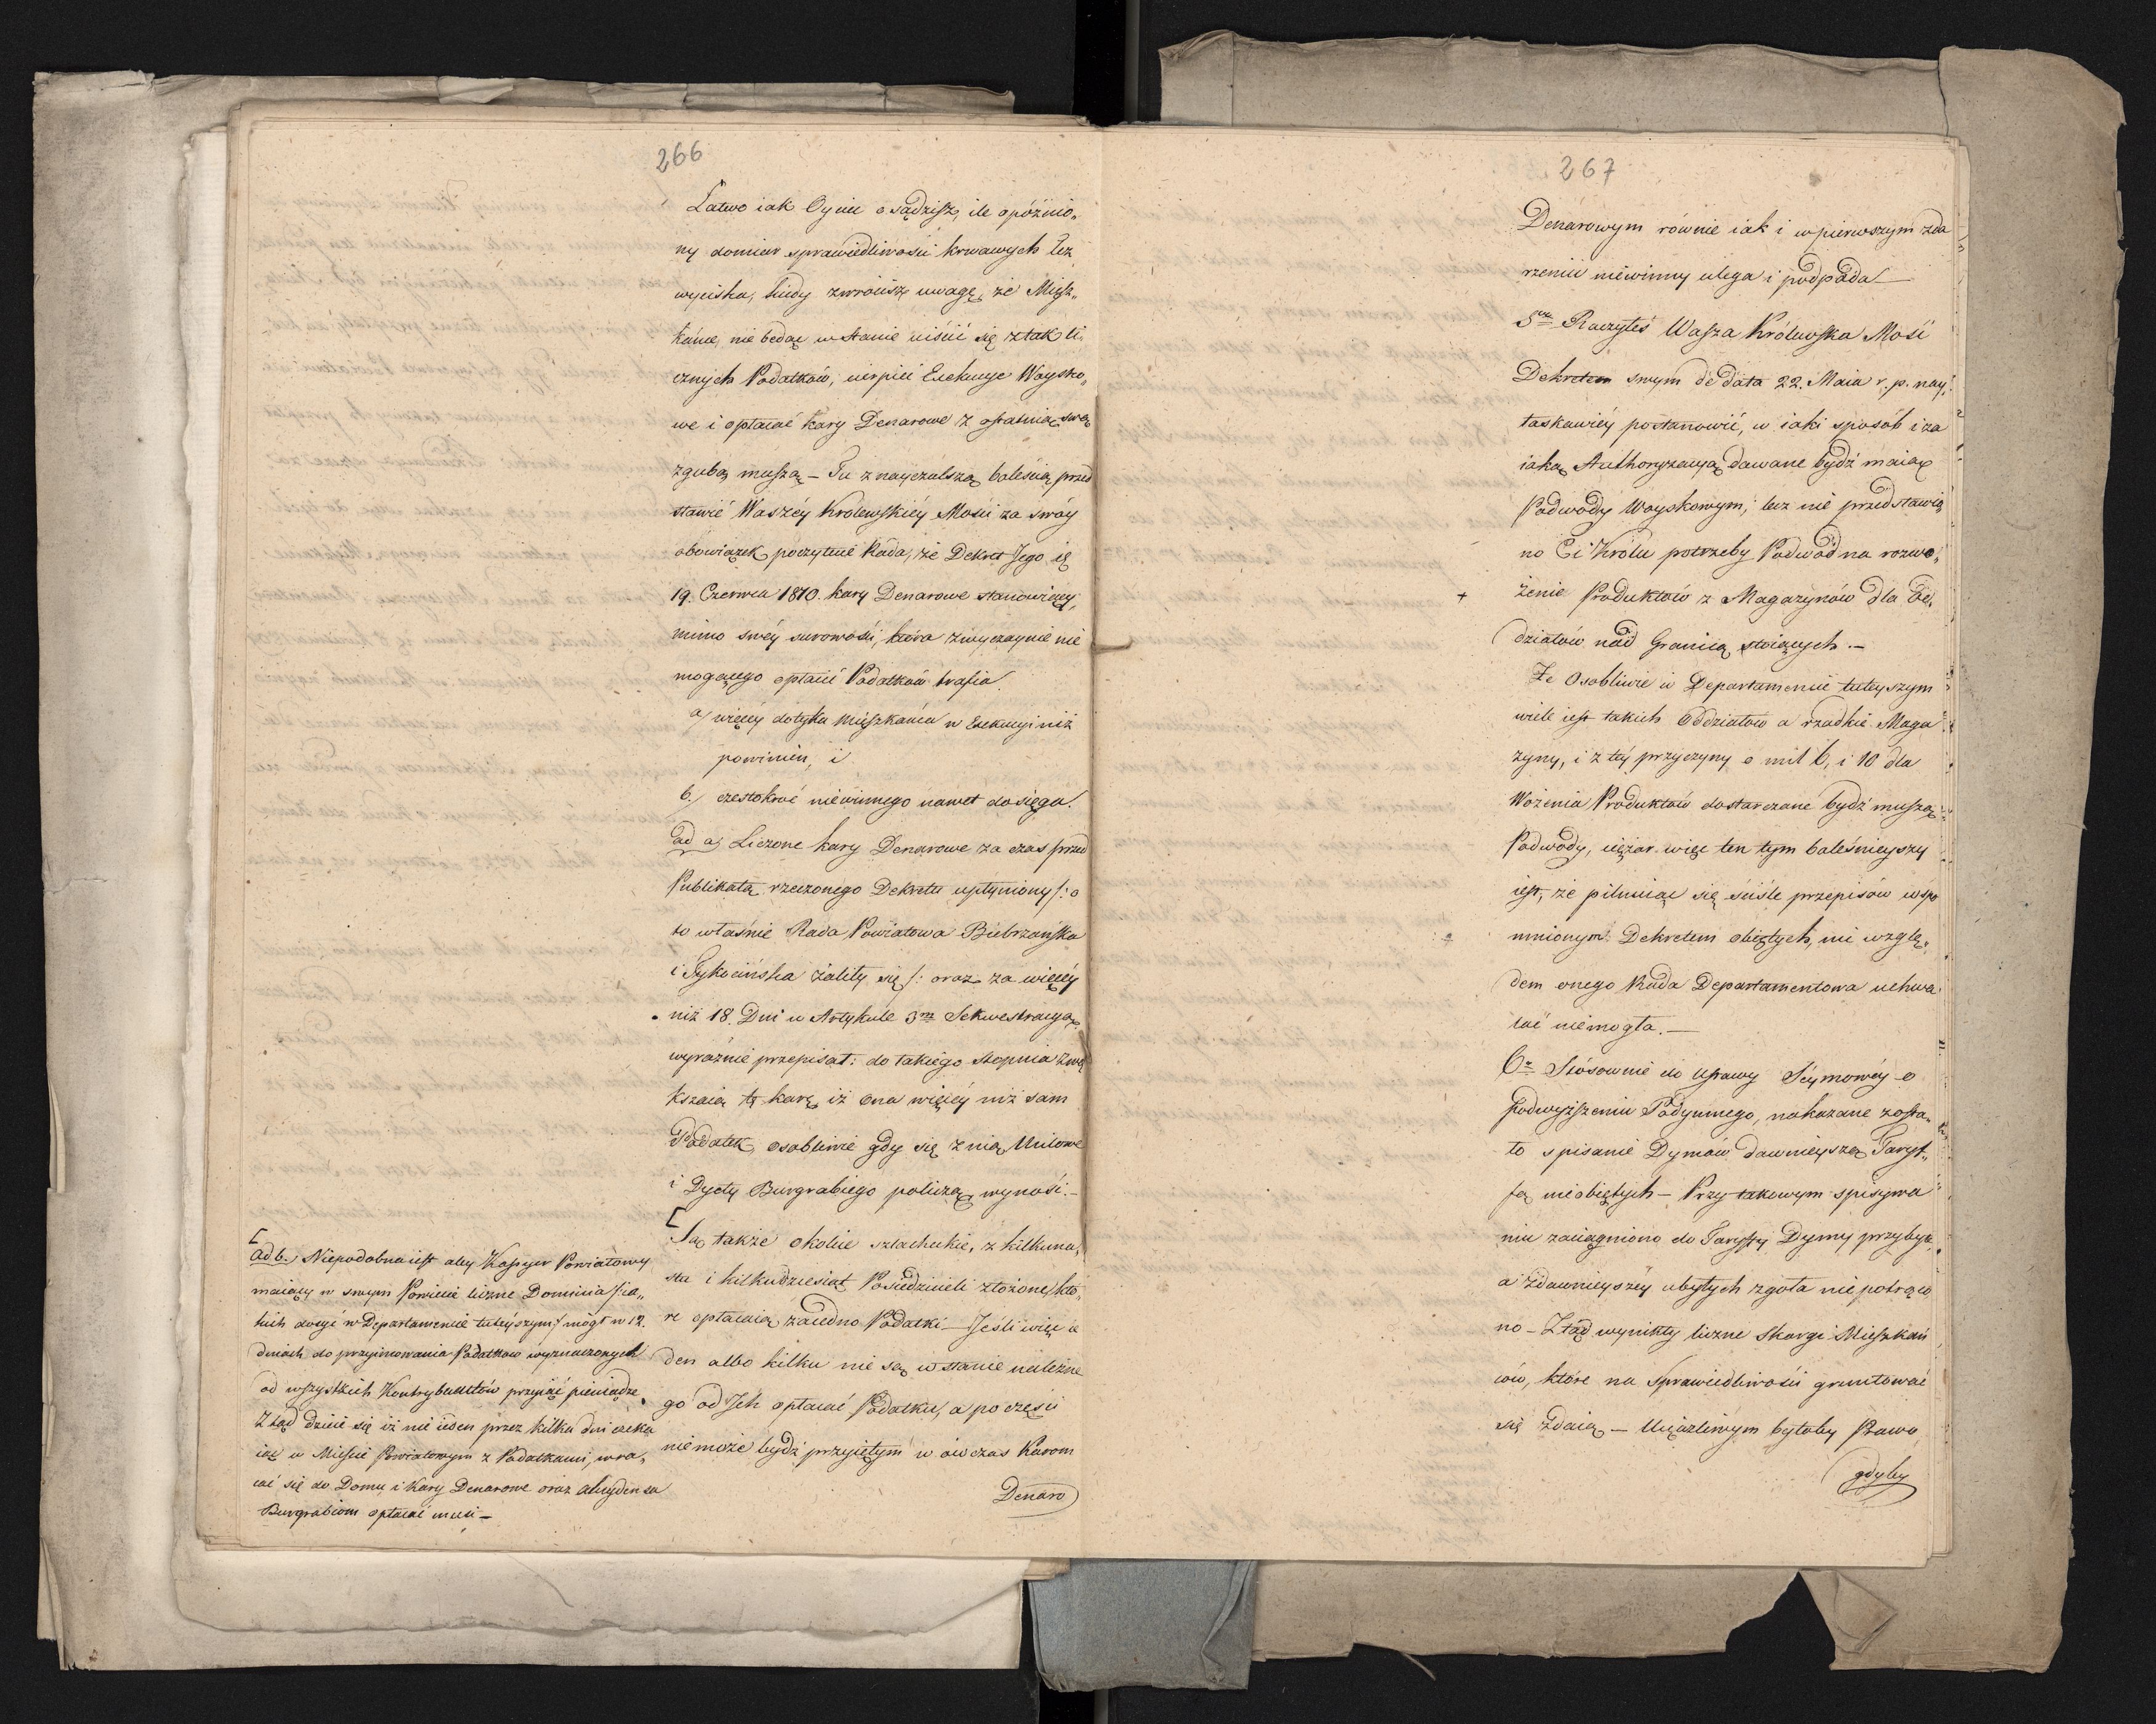 266
Łatwo iak Oycie osądzisz, ile opóźnio„
ny domiar sprawiedliwości krwawych łez
wyciska, kiedy zwrócisz uwagę, że Miesz„
kańce, nie będąc w stanie uiścić się z tak li„
cznych Podatków, cierpieć Exekucye Woysko„
we i opłacać kary Denarowe z ostatnią swą
zgubą muszą – Tu z nayczulszą boleścią przed
stawić Waszéy Królewskiéy Mości za swóy
obowiązek poczytuie Rada, że Dekret Jego
19. Czerwca 1810. kary Denarowe stanowiący,
mimo swéy surowości, która zwyczaynie nie
mogącego opłacić Podatków trafia.
a/ więcéy dotyka Mieszkańca w Exekucyi niż
powinien, i
b./ częstokroć niewinnego nawet dosięga.
ad a/ Liczone kary Denarowe za czas przed
Publikatą rzeczonego Dekretu upłyniony /: o
to właśnie Rada Powiatowa Biebrzańska
i Tykocińska żaliły się /: oraz za więcéy
niż 18. Dni w Artykule 3m Sekwestracyą
wyraźnie przepisał: do takiego stopnia zwię
kszaią tę karę, iż ona więcéy niż sam
Podatek, osobliwie gdy się z nią Milowe
i Dyety Burgrabiego policzą, wynosi. –
[Są także okolice szlacheckie, z kilkuna„
stu i kilkudziesiąt Posiedzicieli złożone, któ„
re opłacaią zaiedno Podatki – Jeśli więc ie
den albo kilku nie są w stanie należne
go od Ich opłacać Podatku, a po części
nie może bydź przyiętym w ówczas Karom
Denaro
[ad b.) Niepodobna iest aby Kassyer Powiatowy
maiący w swym Powiecie liczne Dominia /: ia„
kich dosyć w Departamencie tuteyszym :/ mógł w 12.
dniach do przyimowania Podatków wyznaczonych
od wszystkich Kontrybuentów przyiąć pieniądze.
Ztąd dzieie się iż nie ieden przez kilka dni czeka
iąc w Mieście Powiatowym z Podatkami, wra„
cać się do Domu i Kary Denarowe oraz
Burgrabiom opłacać musi –
267
Denarowym równie iak i w pierwszym zda
rzeniu niewinny ulega i podpada –
5te Raczyłeś Wasza Królewska Mość
Dekretem swym de data 22. Maia r. p. nay„
łaskawiéy postanowić, w iaki sposób i za
iaką Authoryzacyą dawane bydź maią
Podwody Woyskowym; lecz nie przedstawio
no Ci Królu potrzeby Podwód na rozwo„
+ żenie Produktów z Magazynów dla Od„
działów nad Granicą stoiących. –
Że Osobliwie w Departamencie tuteyszym
wiele iest takich Oddziałów a rzadkie Maga
zyny, i z téy przyczyny o mil 6, i 10 dla
Wożenia Produktów dostarczane bydź muszą
Podwody, ciężar więc ten tym boleśnieyszy
iest, że pilnuiąc się ściśle przepisów wspo
mnionym Dekretem obiętych, nic wzglę„
dem onego Rada Departamentowa uchwa
lać niemogła. –
6te Stósownie do Ustawy Séymowéy o
podwyższeniu Podymnego, nakazane zosta„
ło spisanie Dymów dawnieyszą Taryf„
fą nieobiętych – Przy takowym spisywa
niu zaciągniono do Taryffy Dymy przybyłe,
a z dawnieyszéy ubyłych zgoła nie potrąco
no – Ztąd wynikły liczne Skargi Mieszkań
ców, które na Sprawiedliwości gruntować
się zdaią – Uciążliwym byłoby Prawo
gdyby